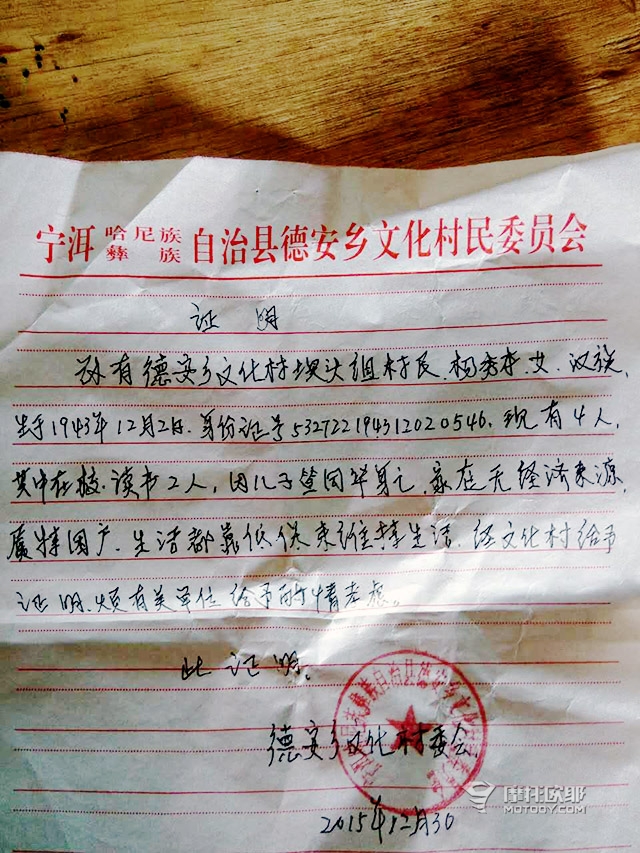 宁洱哈尼族彝族自治县德安乡文化村民委员会
证 明
兹有德安乡文化村坝头组村民.杨秀李.女.汉族.
生于1943年12月2日.身份证号532722194312020546.现有4人,
其中在校.读书2人,因儿子 身亡.家庭无经济来源,
属特困户.生活都靠低保来维持生活.经文化村给予
证明.烦有关单位给予酌情考虑。
此证明。
德安乡文化村委会
2015年12月30
摩托欧耶
MOTOOY.COM